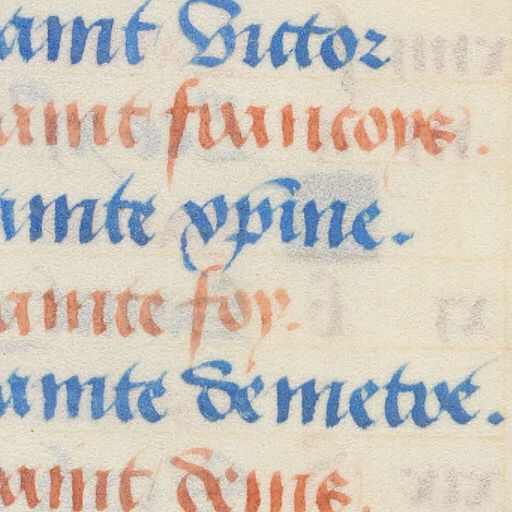 aint Victor
aint francoys.
ainte xp̃ine.
ainte foy.
ainte demetre.
aint denis.